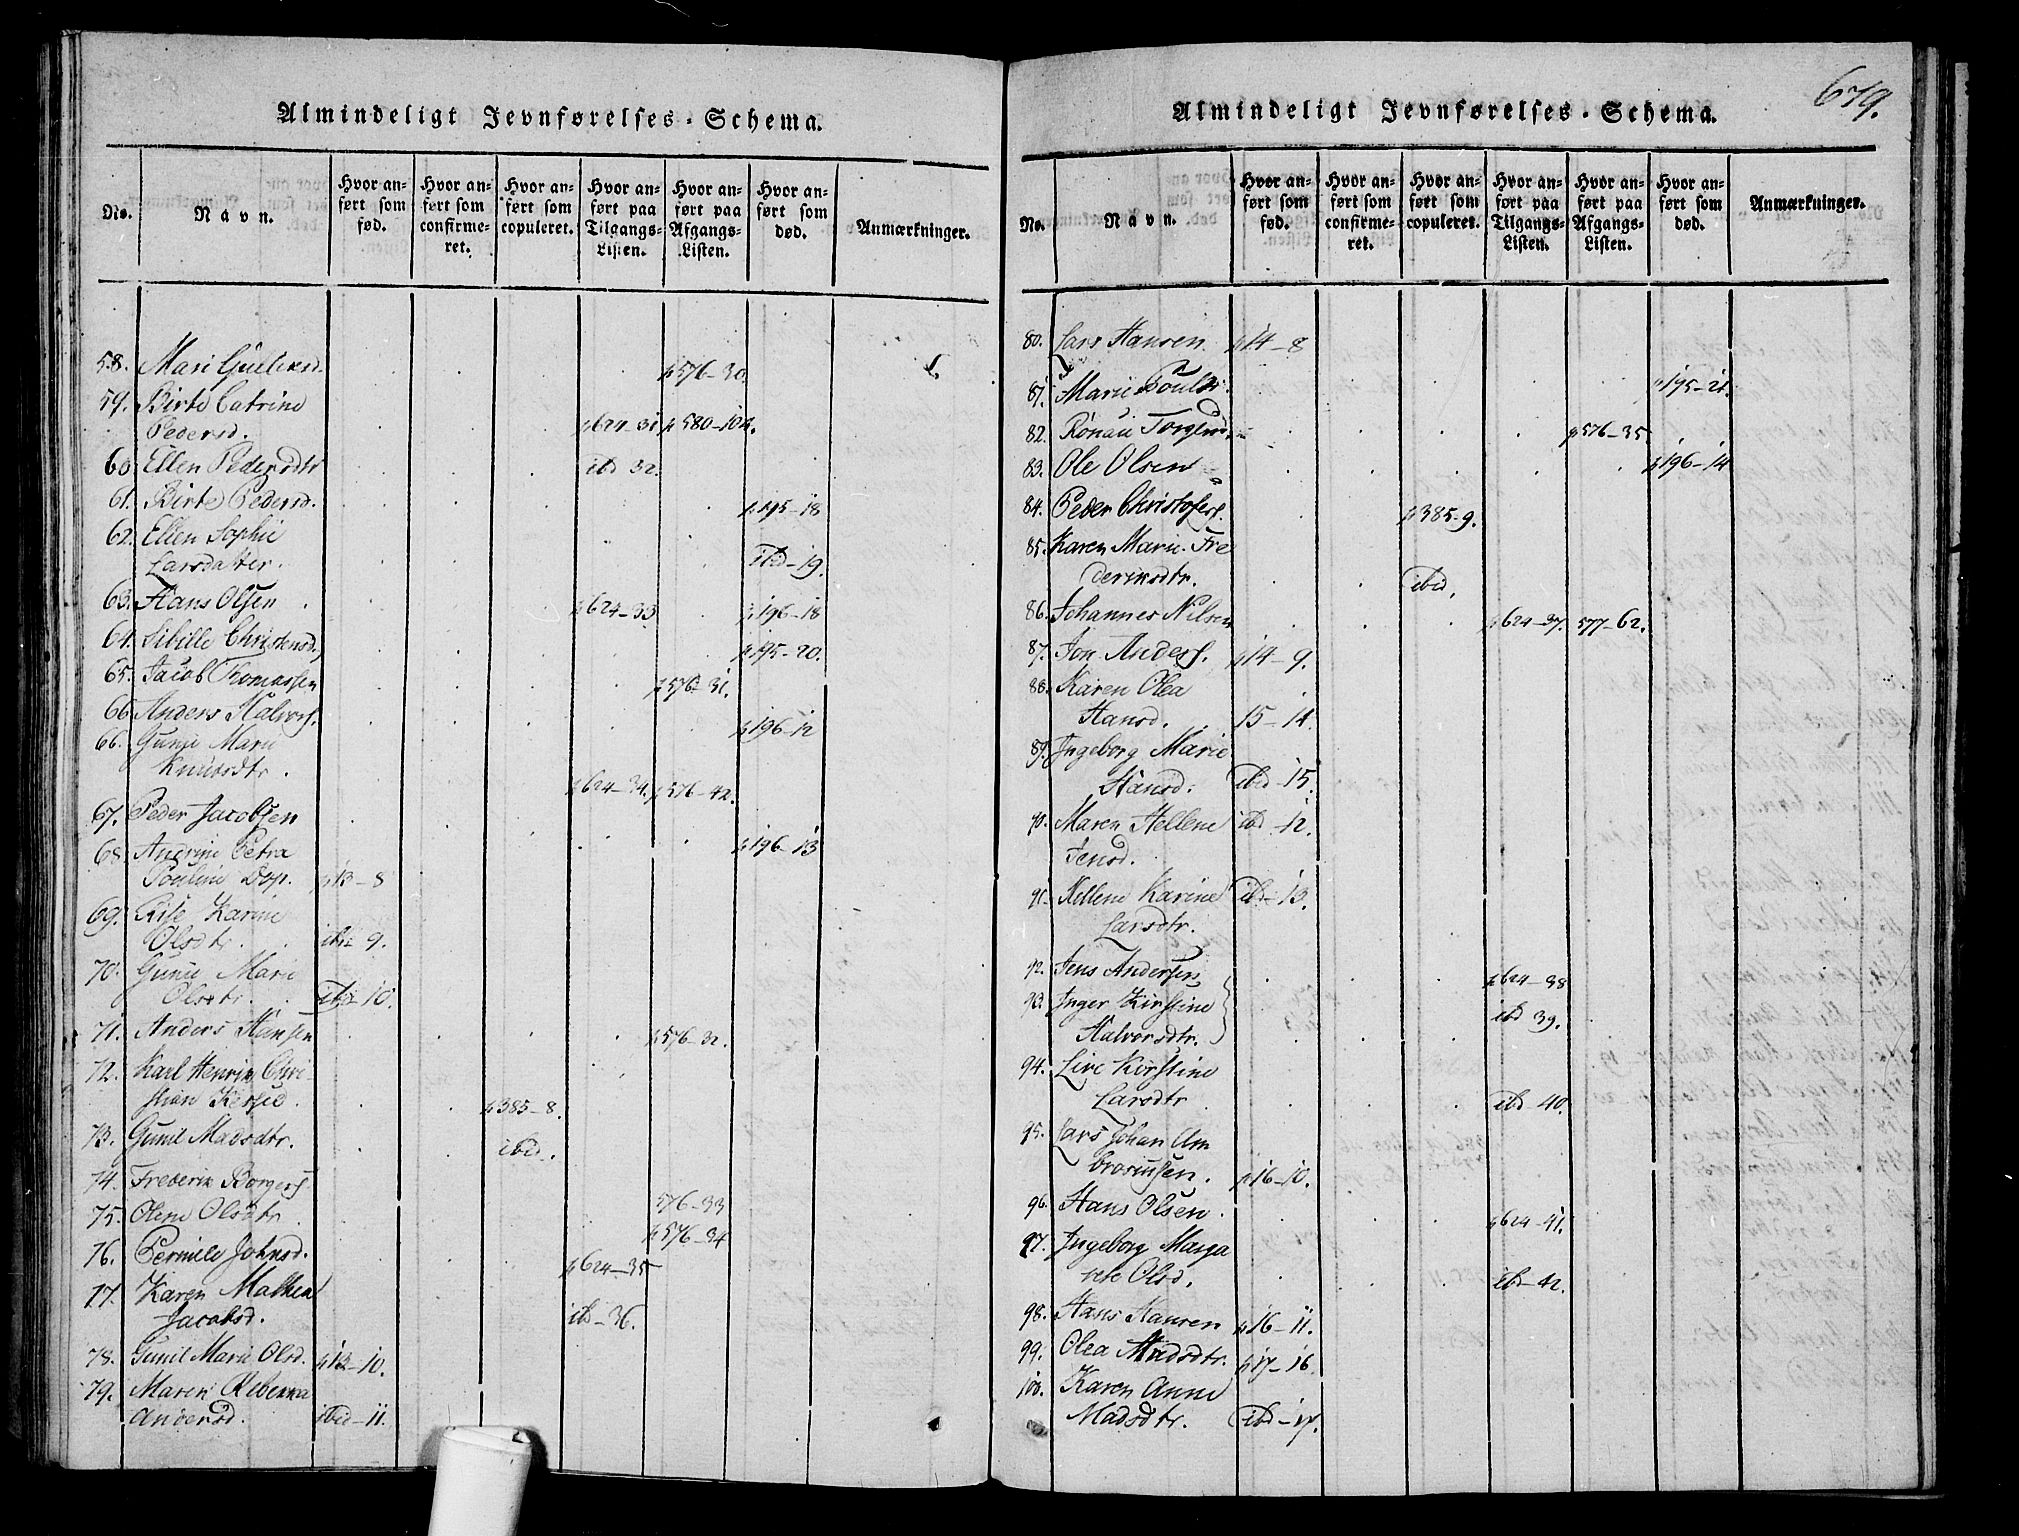 Almindeligt Jevnførelses-Schema.
No. Navn. Hvor anført som fød. Hvor anført som confirmeret. Hvor anført som copuleret. Hvor anført paa Tilgangs-Listen. Hvor anført paa Afgangs-Listen. Hvor anført som død. Anmærkninger.
58. Mari p576-30.
59. Birte Catrine
Pedersd. p624-31 p580-104.
60 Ellen Pedersdtr ibd 32.
61. Birte Pedersd. p195-18
62. Ellen Sophie
Larsdatter. ibid-19.
63. Hans Olsen p624-33 p196-18
64. Sibille Christensd. p195-20.
65. Jacob Thomassen p576-31.
66 Anders Halvors. p196-12
66. Gunil Marie
Knudsdtr. p624-34. p576-42.
67. Peder Jacobsen p196-13
68. Andrine Petra
Pouline Dop. p13-8
69. Else Karine
Olsdtr. ibd 9.
70. Gunil Marie
Olsdtr. ibd 10.
71. Anders Hansen p576-32.
72. Karl Henrik Chri-
stian p385-8.
73. Gunil Madsdtr. ibid.
74. Frederik Borgers 576-33
75. Olene Olsdtr p576-34
76. Pernille Johnsd. p624-35
77. Karen Mathea
Jacobsd. ibd-36.
78. Gunil Marie Olsd. p13-10.
79. Maren Rebekka
Andersd. ibid-11.
679.
Almindeligt Jevnførelses-Schema.
No. Navn. Hvor anført som fød. Hvor anført som confirmeret. Hvor anført som copuleret. Hvor anført paa Tilgangs-Listen. Hvor anført paa Afgangs-Listen. Hvor anført som død. Anmærkninger.
80. Lars Hansen. p14-8
81. Marie Pouls. p195-21.
82. Rønau p576-35
83. Ole Olsen p196-14
84. Peder Christofers. p385-9.
85. Karen Marie Fre
deriksdtr. ibid.
86. Johannes Nilsen p624-37. 577-62.
87. Jon Anders. p14-9.
88. Karen Olea
Hansd. 15-14.
89. Ingeborg Marie
Hansd. ibd-15.
90. Maren Hellene ibd-12.
Jensd.
91. Hellene Karine ibd-13.
Larsdtr.
92. Jens Andersen p624-38
93. Inger Kirstine ibd 39.
Halvorsdtr.
94. Live Kirstine
Larsdtr ibd 40.
95. Lars Johan Am
brosiussen. p16-10.
96. Hans Olsen. p624-41.
97. Ingeborg Marga
rete Olsd. ibd-42.
98. Hans Hansen p16-11.
99. Olea Madsdtr. p17-16.
100. Karen Anne
Madsdtr. ibd-17.